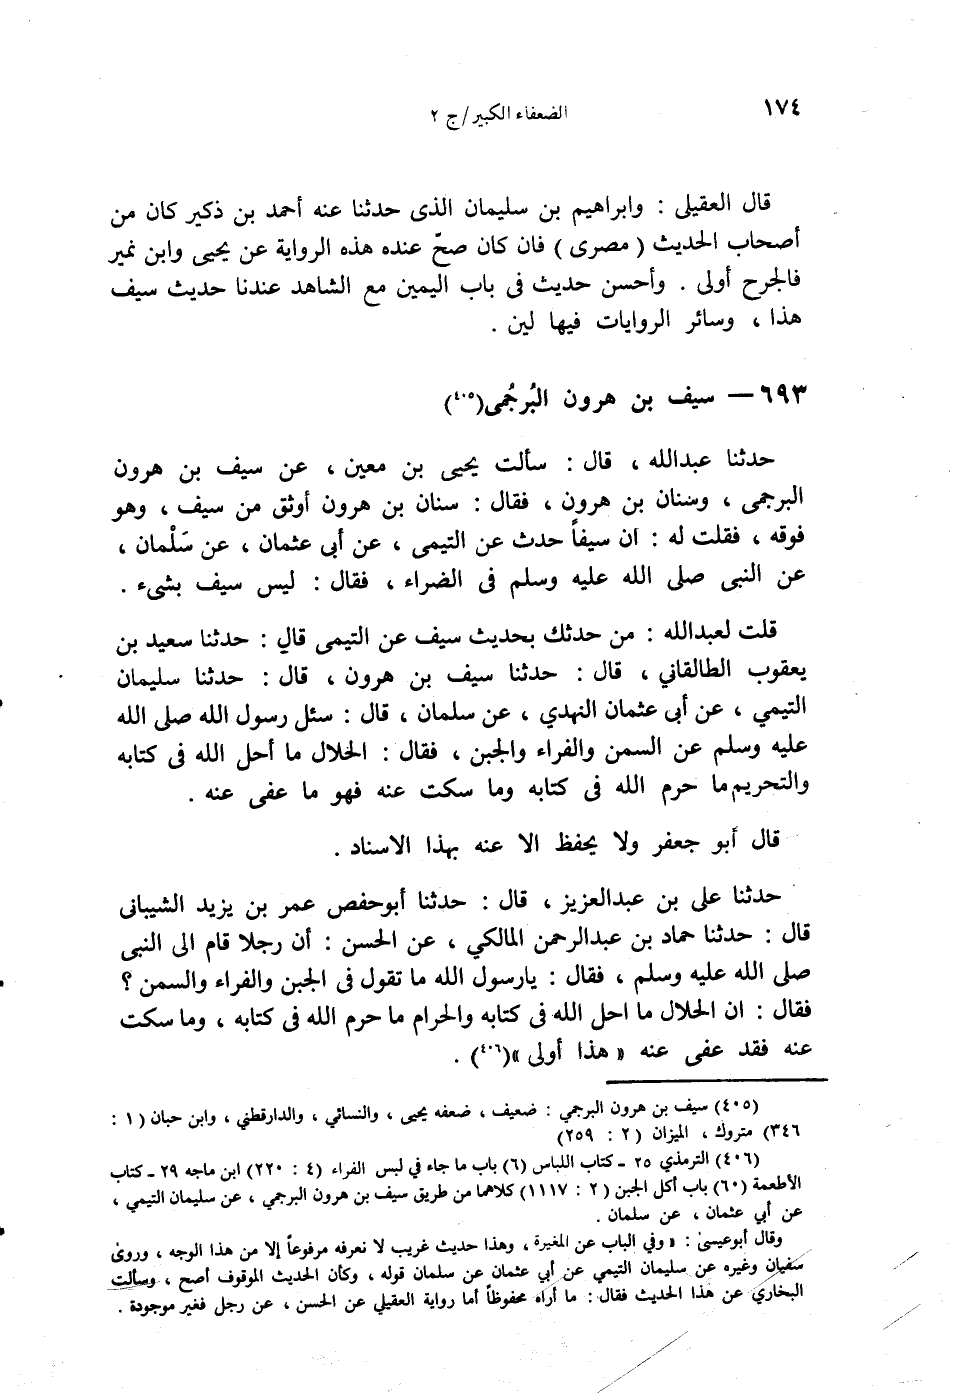 ١٧٤
الضعفاء الكبير/ج ٢
قال العقيلى : وابراهيم بن سليمان الذى حدثنا عنه أحمد بن ذكير كان من
أصحاب الحديث ( مصرى ) فان كان صحّ عنده هذه الرواية عن يحيى وابن نمير
فالجرح أولى . وأحسن حديث فى باب اليمين مع الشاهد عندنا حديث سيف
هذا ، وسائر الروايات فيها لين .
٦٩٣ — سيف بن هرون البُرجُمى(٤٠٥)
حدثنا عبدالله ، قال : سألت يحيى بن معين ، عن سيف بن هرون
البرجمى ، وسنان بن هرون ، فقال : سنان بن هرون أوثق من سيف ، وهو
فوقه ، فقلت له : ان سيفاً حدث عن التيمى ، عن أبى عثمان ، عن سَلْمان ،
عن النبى صلى الله عليه وسلم فى الضراء ، فقال : ليس سيف بشىء .
قلت لعبدالله : من حدثك بحديث سيف عن التيمى قال : حدثنا سعيد بن
يعقوب الطالقاني ، قال : حدثنا سيف بن هرون ، قال : حدثنا سليمان
التيمي ، عن أبى عثمان النهدي ، عن سلمان ، قال : سئل رسول الله صلى الله
عليه وسلم عن السمن والفراء والجبن ، فقال : الحلال ما أحل الله فى كتابه
والتحريم ما حرم الله فى كتابه وما سكت عنه فهو ما عفى عنه .
قال أبو جعفر ولا يحفظ الا عنه بهذا الاسناد .
حدثنا على بن عبدالعزيز ، قال : حدثنا أبوحفص عمر بن يزيد الشيبانى
قال : حدثنا حماد بن عبدالرحمن المالكي ، عن الحسن : أن رجلا قام الى النبى
صلى الله عليه وسلم ، فقال : يارسول الله ما تقول فى الجبن والفراء والسمن ؟
فقال : ان الحلال ما احل الله فى كتابه والحرام ما حرم الله فى كتابه ، وما سكت
عنه فقد عفى عنه « هذا أولى »(٤٠٦) .
(٤٠٥) سيف بن هرون البرجمي : ضعيف ، ضعفه يحيى ، والنسائي ، والدارقطني ، وابن حبان (١ :
٣٤٦) متروك ، الميزان (٢ : ٢٥٩)
(٤٠٦) الترمذي ٢٥ ـ كتاب اللباس (٦) باب ما جاء في لبس الفراء (٤ : ٢٢٠) ابن ماجه ٢٩ ـ كتاب
الأطعمة (٦٠) باب أكل الجبن (٢ : ١١١٧) كلاهما من طريق سيف بن هرون البرجمي ، عن سليمان التيمي ،
عن أبي عثمان ، عن سلمان .
وقال أبوعيسى : « وفي الباب عن المغيرة ، وهذا حديث غريب لا نعرفه مرفوعاً إلا من هذا الوجه ، وروى
سفيان وغيره عن سليمان التيمي عن أبي عثمان عن سلمان قوله ، وكأن الحديث الموقوف أصح ، وسألت
البخاري عن هذا الحديث فقال : ما أراه محفوظاً أما رواية العقيلي عن الحسن ، عن رجل فغير موجودة .